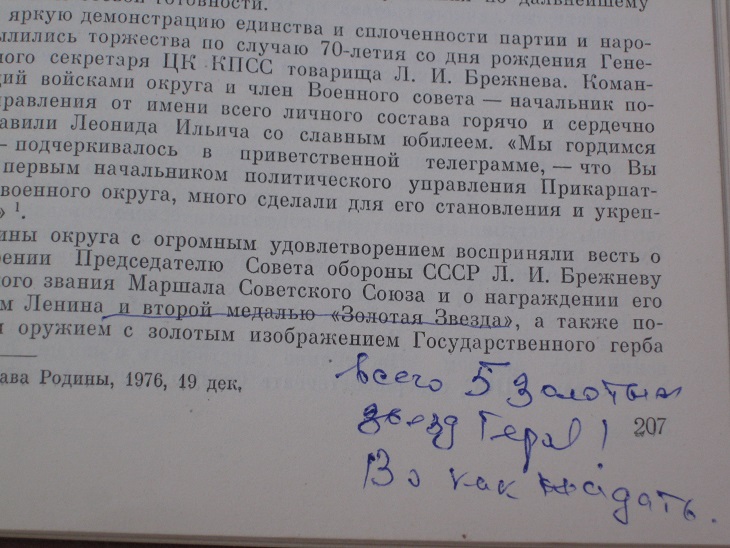 по дальнейшему
готовности.
яркую демонстрацию единства и сплоченности партии и наро-
ылились торжества по случаю 70-летия со дня рождения Гене-
ного секретаря ЦК КПСС товарища Л. И. Брежнева. Коман-
щий войсками округа и член Военного совета — начальник по-
равления от имени всего личного состава горячо и сердечно
авили Леонида Ильича со славным юбилеем. «Мы гордимся
— подчеркивалось в приветственной телеграмме, — что Вы
первым начальником политического управления Прикарпат-
военного округа, много сделали для его становления и укреп-
» 1.
ины округа с огромным удовлетворением восприняли весть о
ении Председателю Совета обороны СССР Л. И. Брежневу
ого звания Маршала Советского Союза и о награждении его
м Ленина и второй медалью «Золотая Звезда», а также по-
м оружием с золотым изображением Государственного герба
ава Родины, 1976, 19 дек,
всего 5 Золотых
звезд Героя!
207
Во как